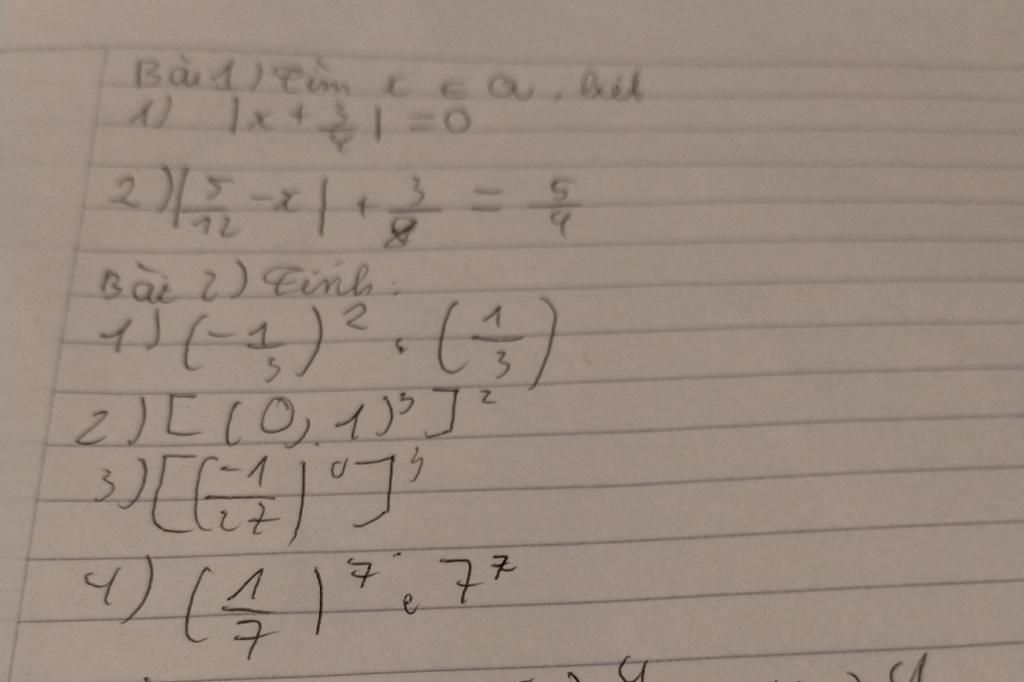 Bài 1) Tìm x ∈ Q, biết
1) |x + 3/4| = 0
2) |5/12 - x| + 3/8 = 5/4
Bài 2) Tính:
1) (-1/3)^2 . (1/3)
2) [(0,1)^3]^2
3) [(-1/27)^0]^3
4) (1/7)^7 . 7^7